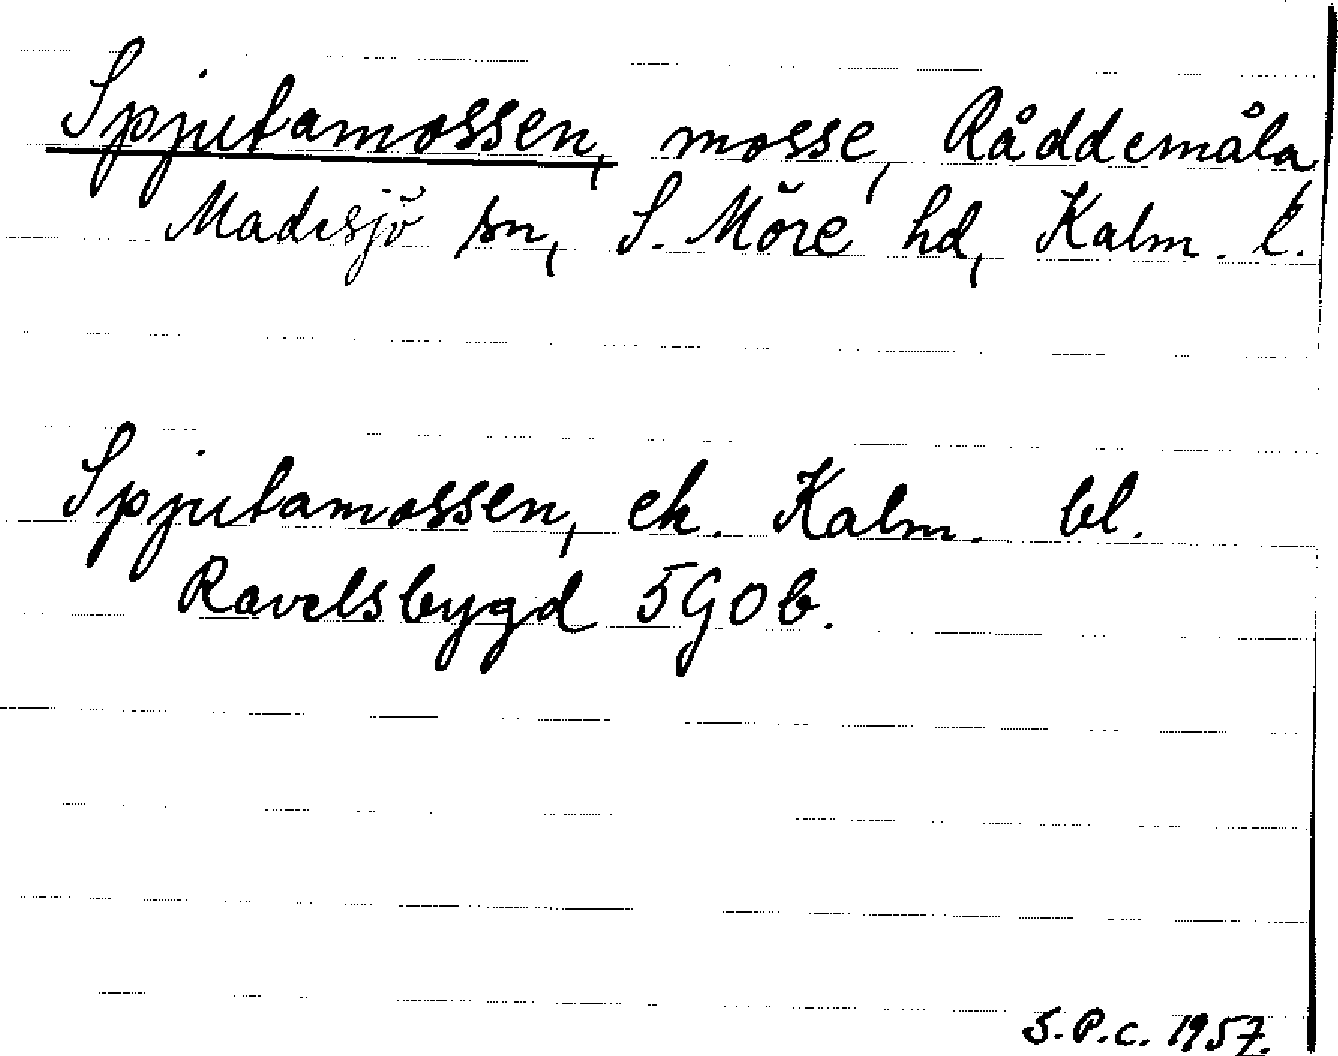 Spjutamossen, mosse, Råddemåla,
Madesjö sn, S. Möre hd, Kalm. l.
Spjutamossen, ek. Kalm. bl.
Ravelsbygd 5G0b.
S.P.C. 1957.